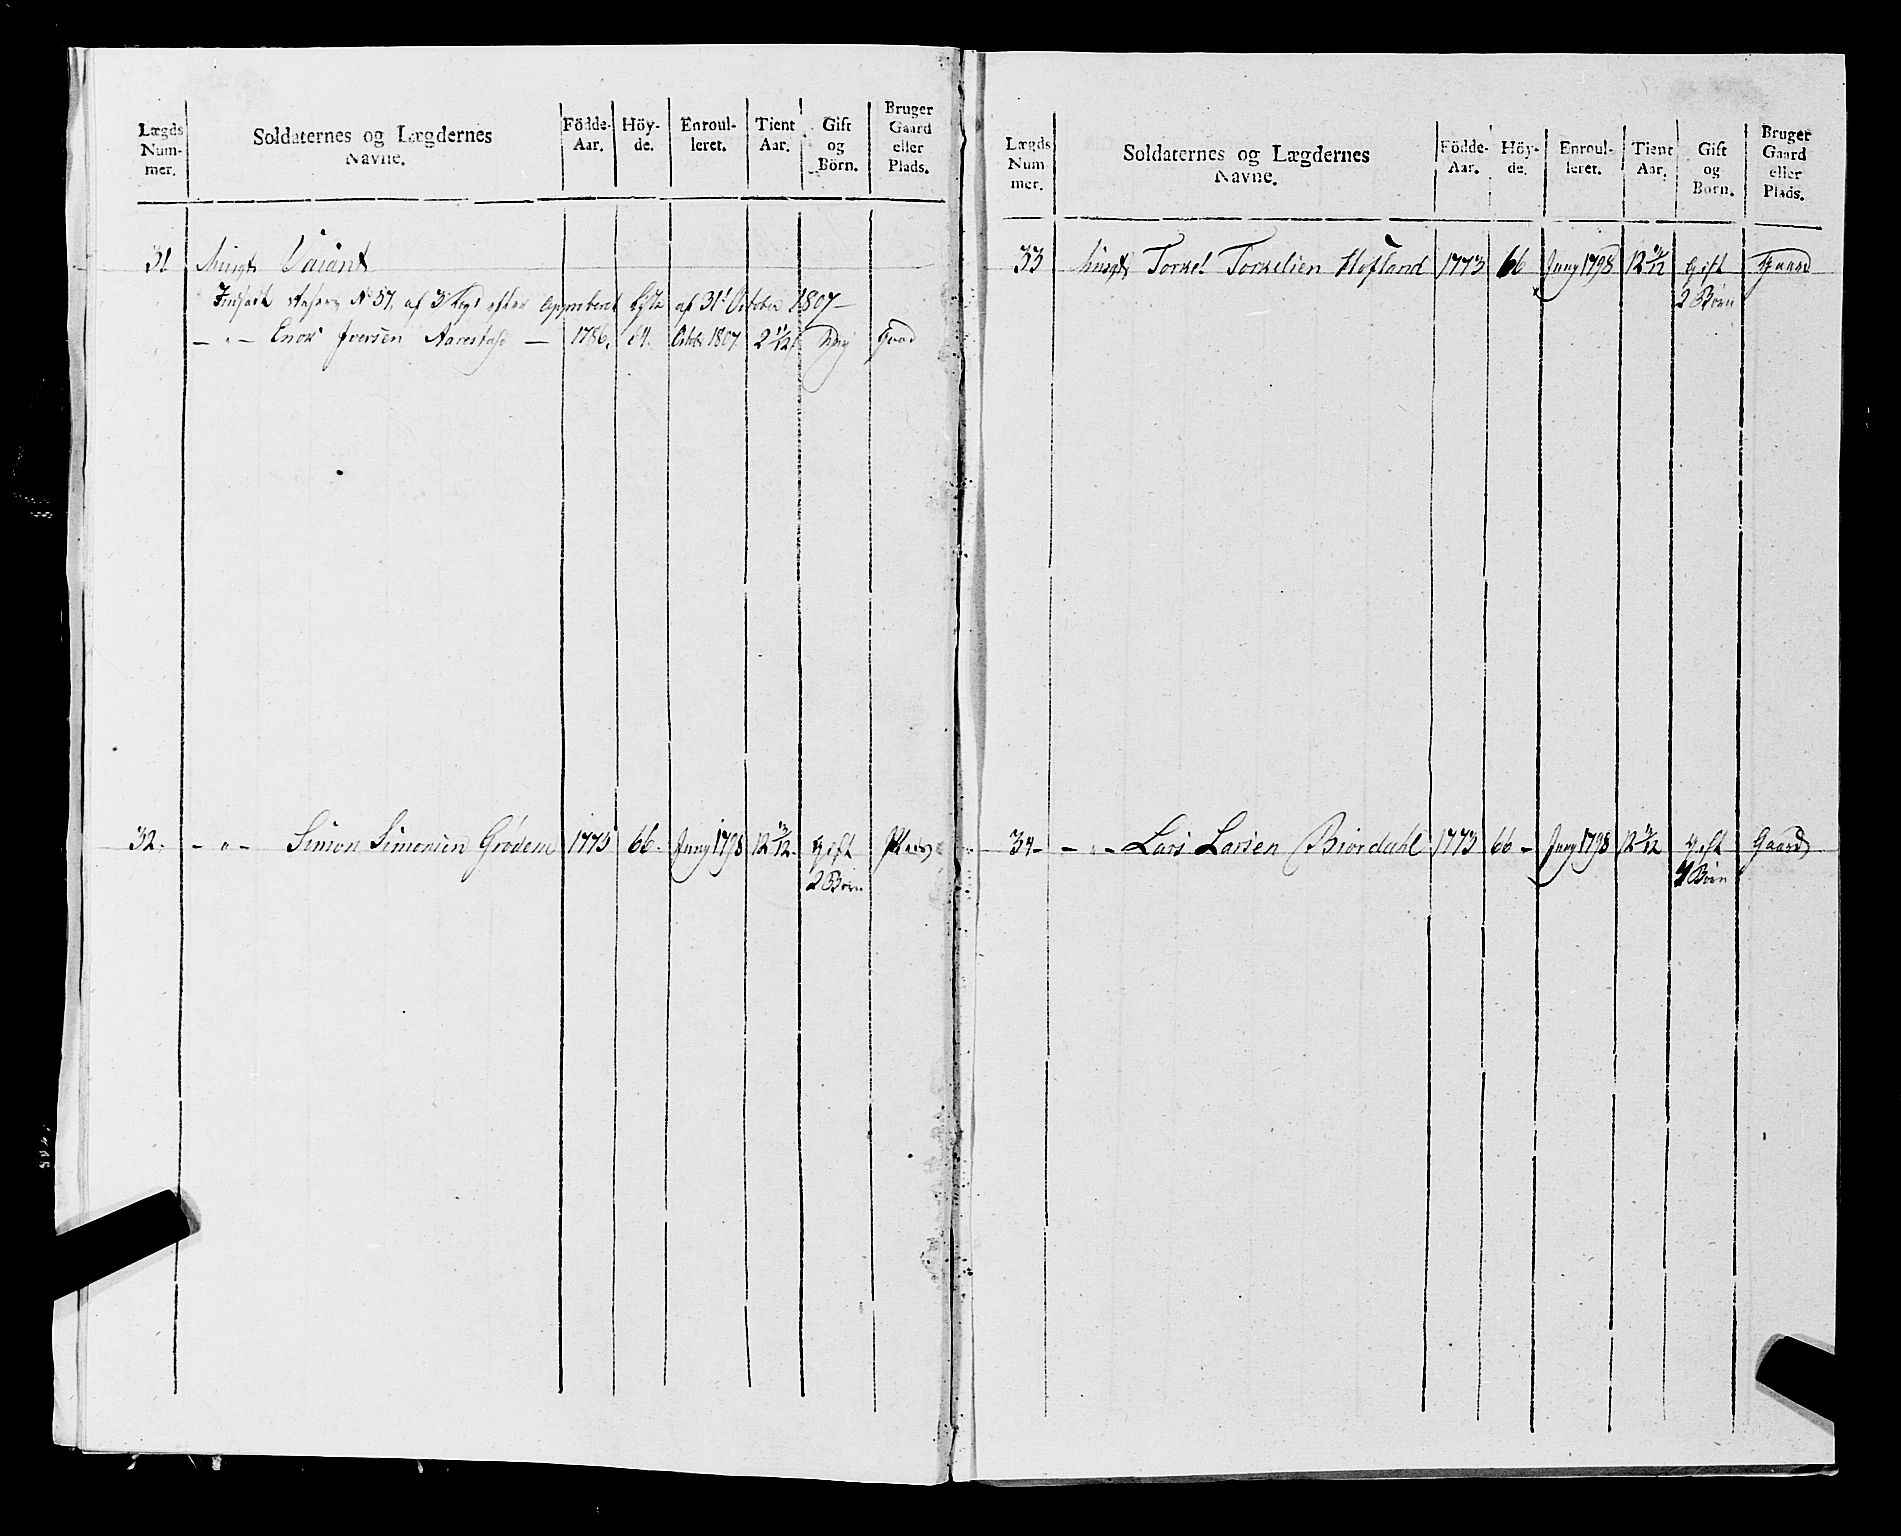 Lægds Num- mer. Soldaternes og Lægdernes Navne. Födde- Aar. Höy- de. Enroul- leret. Tient Aar. Gift og Börn. Bruger Gaard eller Plads.
31 Musqt Vacant
No 57 af 3 efter af 31t October 1807 —
— " — Enok Iversen Aarestad — 1786. 64. Octobr 1807 2 2/12 Gaard
32. - " - Simon Simonsen Grødem 1775 66. Juny 1798 12 Gift Plads
2 Börn
Lægds Num mer. Soldaternes og Lægdernes Navne. Födde- Aar. Höy- de. Enroul- leret. Tient Aar. Gift og Born. Bruger Gaard eller Plads.
33 Musqt Torkel Torkelsen Hofland 1773 66 Juny 1798 12 Gift Gaard
2 Börn
34 - - " - Lars Larsen Biordahl 1773 66 - Juny 1798 12 Gift Gaard
4 Börn